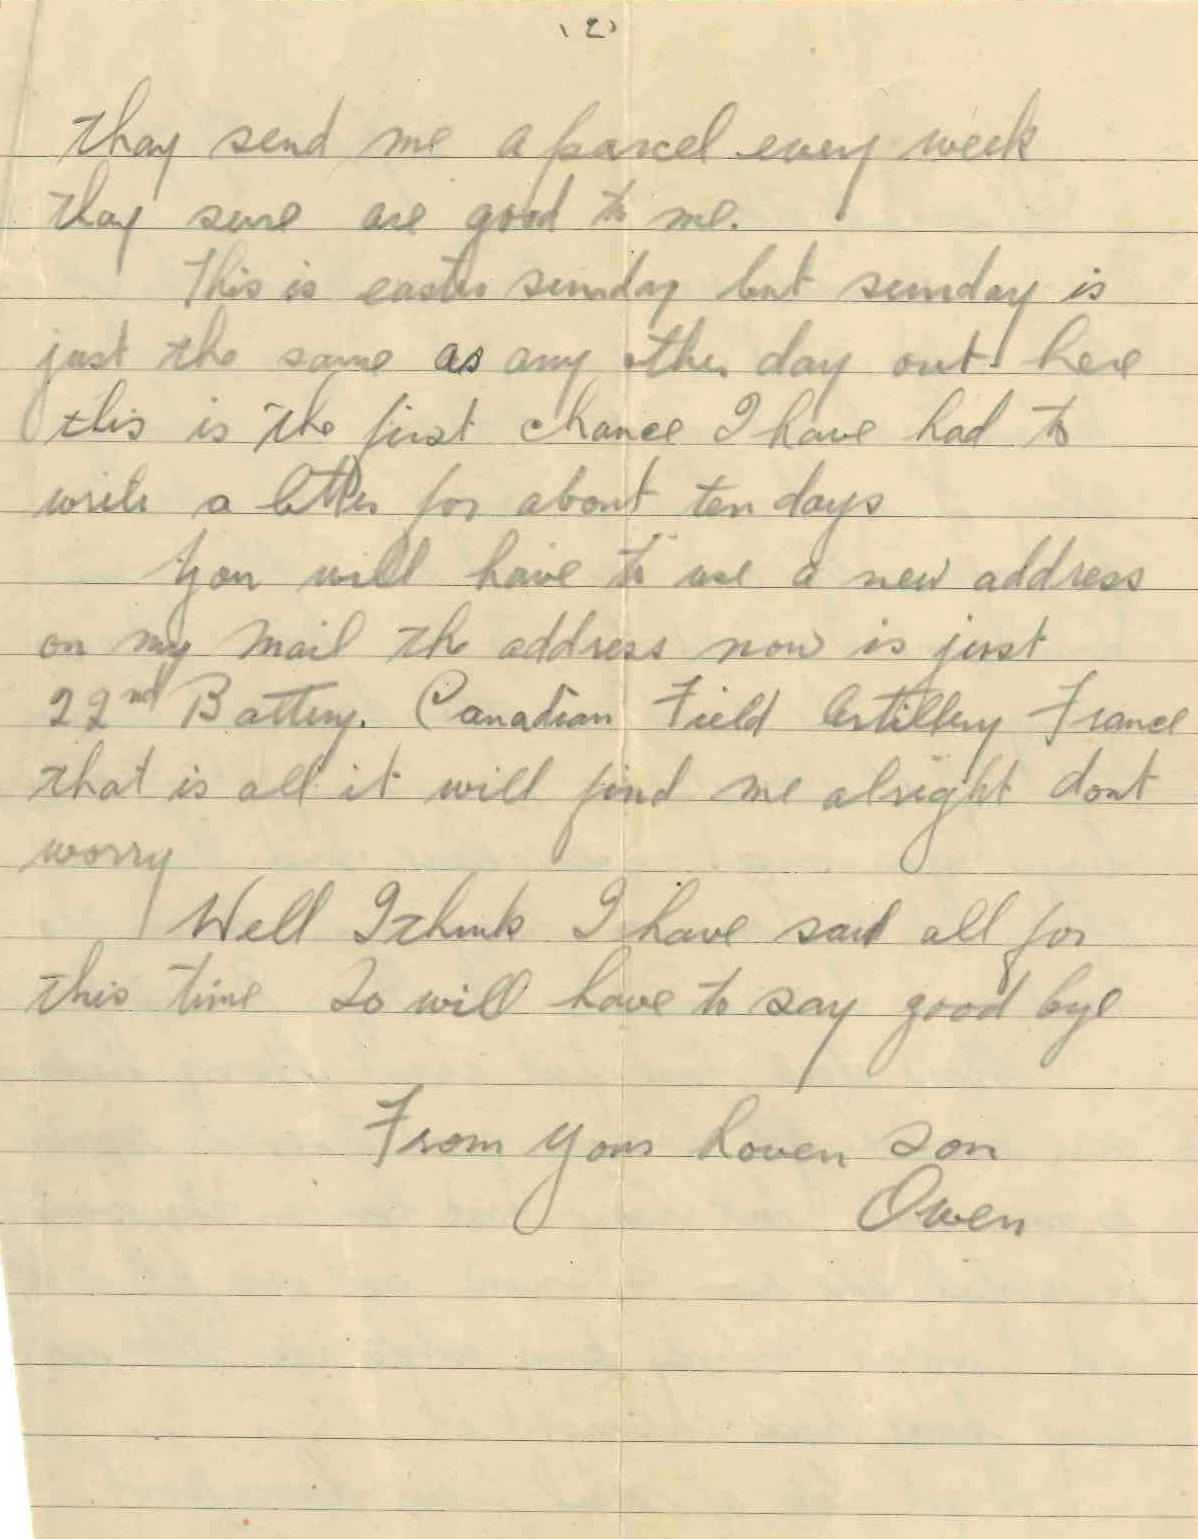 (2)
thay send me a parcel every week
thay sure are good to me.
This is easter sunday but sunday is
just the same as any other day out here
this is the first chance I have had to
write a letter for about ten days
You will have to use a new address
on my mail the address now is just
22nd Battery. Canadian Field Artillery France
that is all it will find me alright dont
worry
Well I think I have said all for
this time So will have to say good bye
From your loven son
Owen